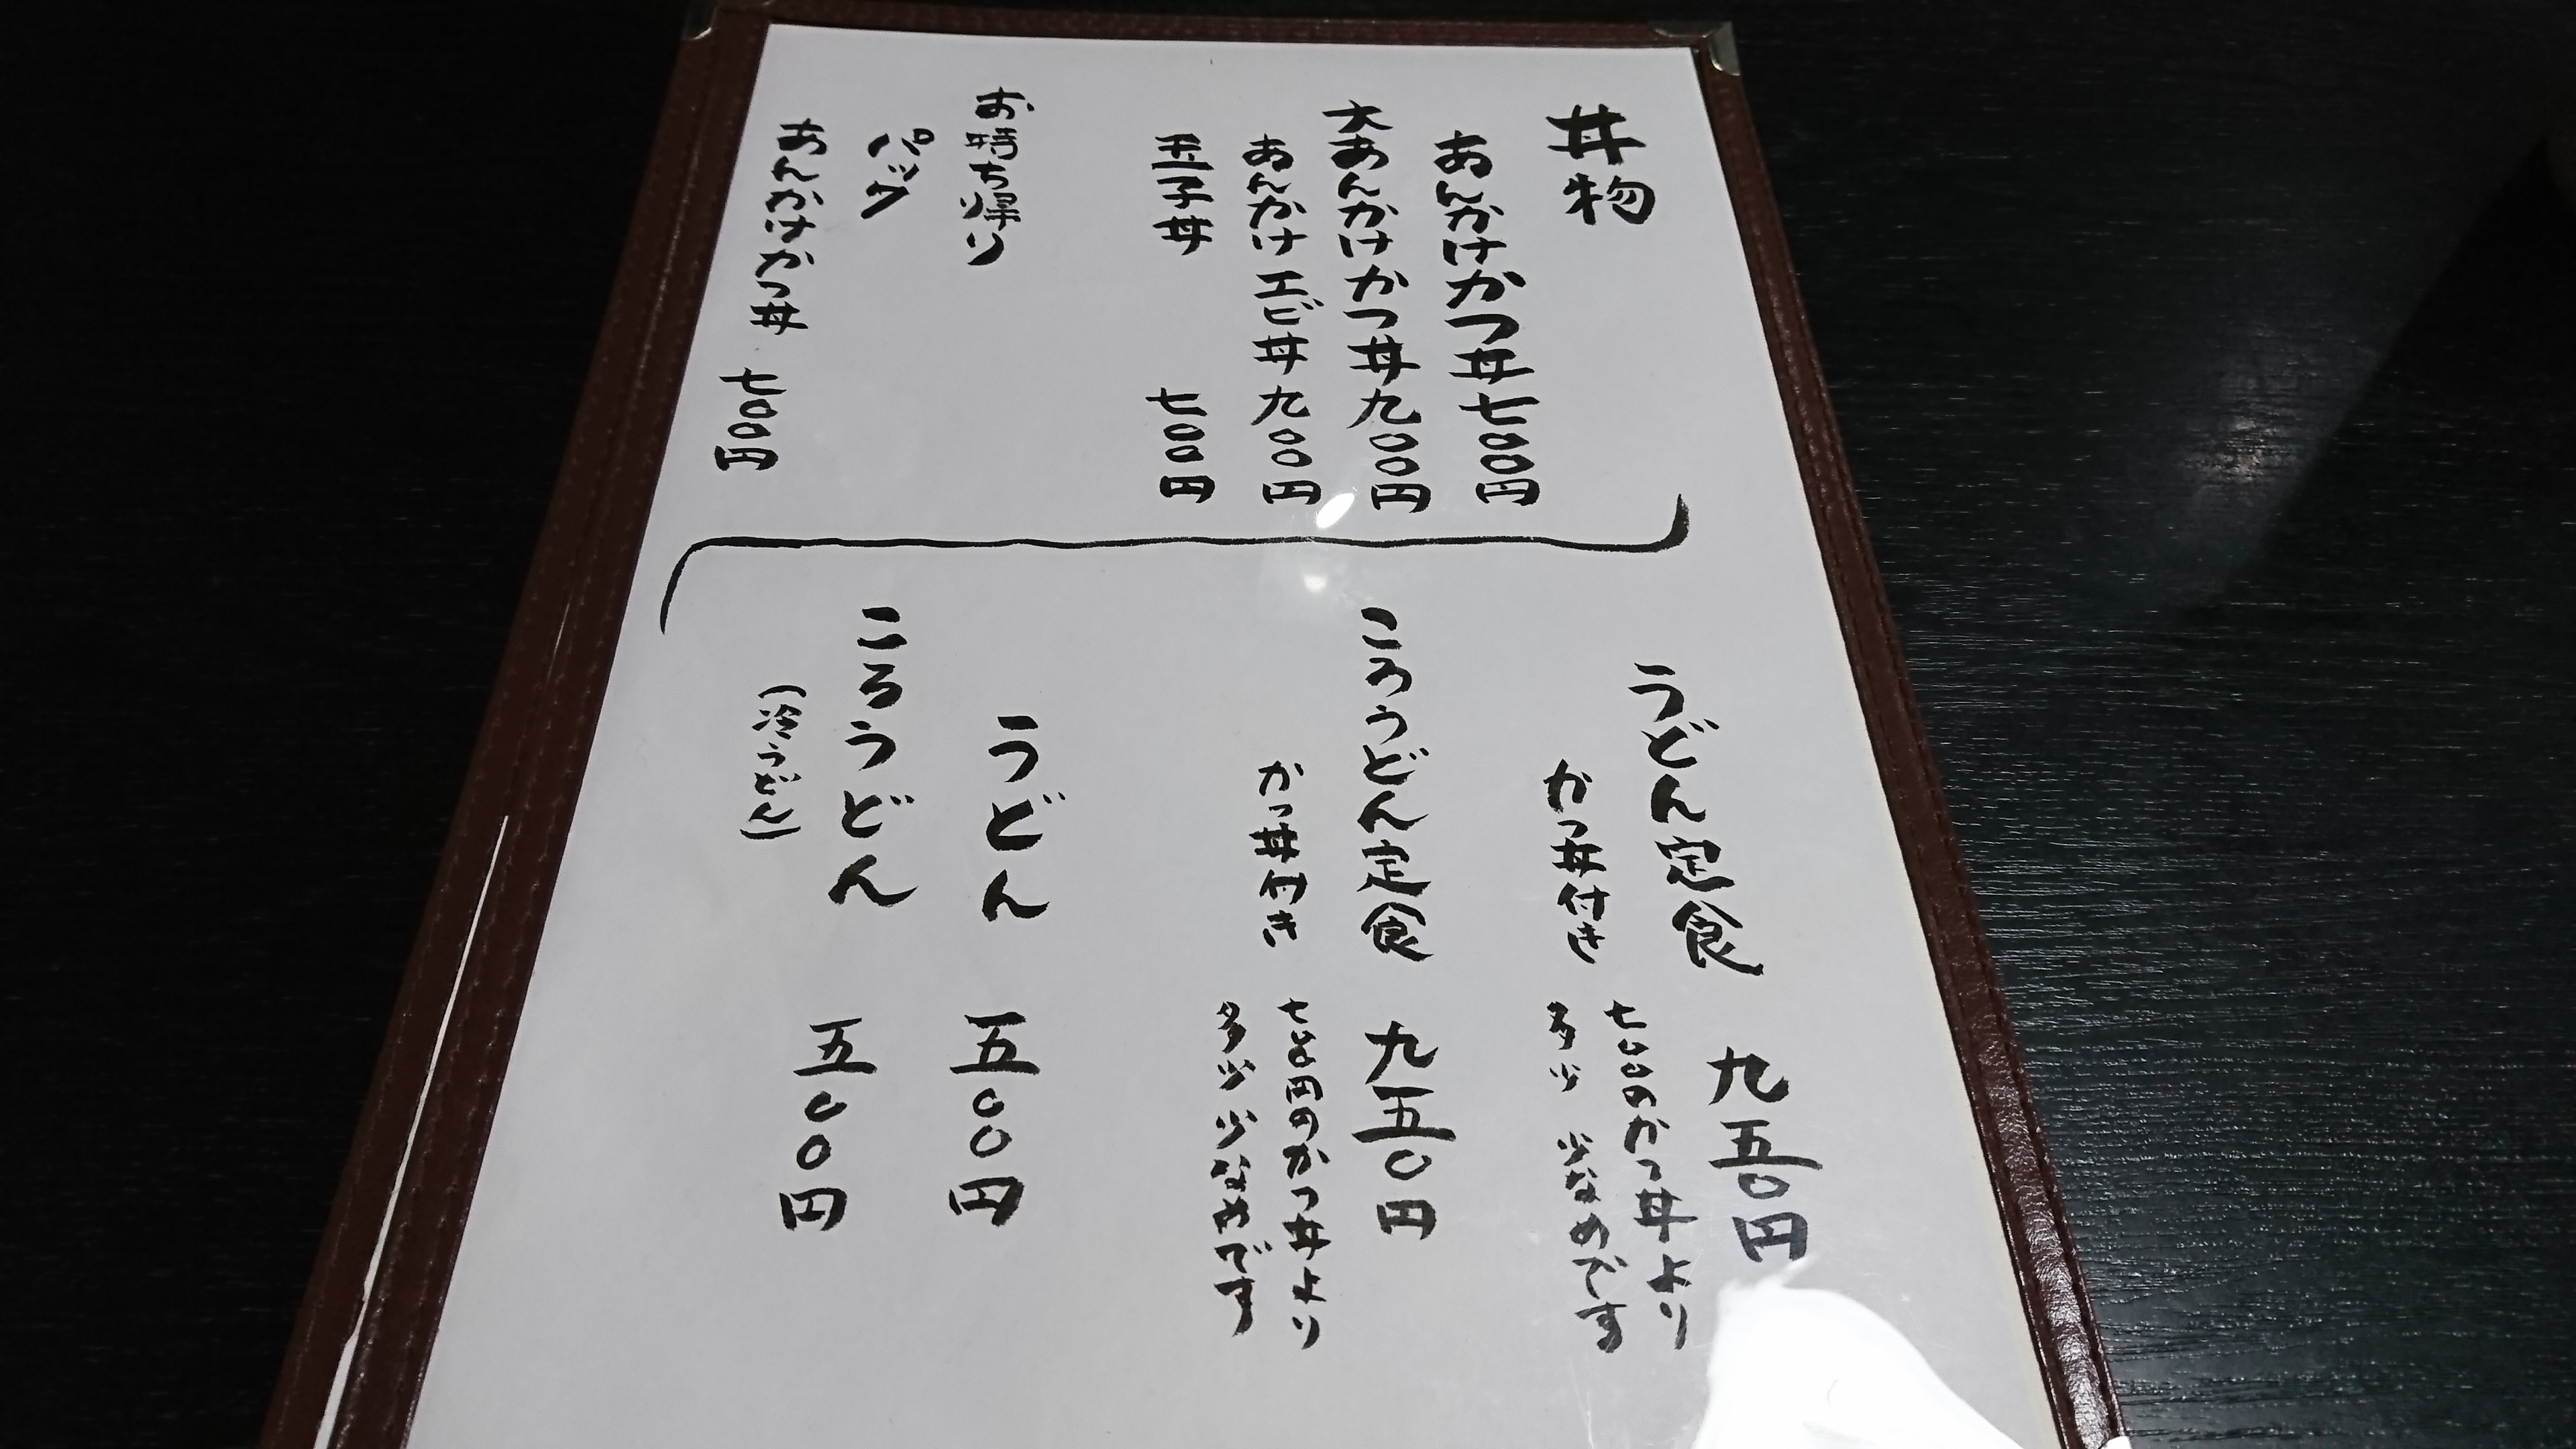 丼物
あんかけかつ丼七〇〇円
大あんかけかつ丼九〇〇円
あんかけエビ丼九〇〇円
玉子丼 七〇〇円
お持ち帰り
パック
あんかけかつ丼 七〇〇円
うどん定食 九五〇円
かつ丼付き
七〇〇のかつ丼より
多少 少なめです
ころうどん定食 九五〇円
かつ丼付き
七〇〇円のかつ丼より
多少少なめです
うどん 五〇〇円
ころうどん 五〇〇円
(冷うどん)